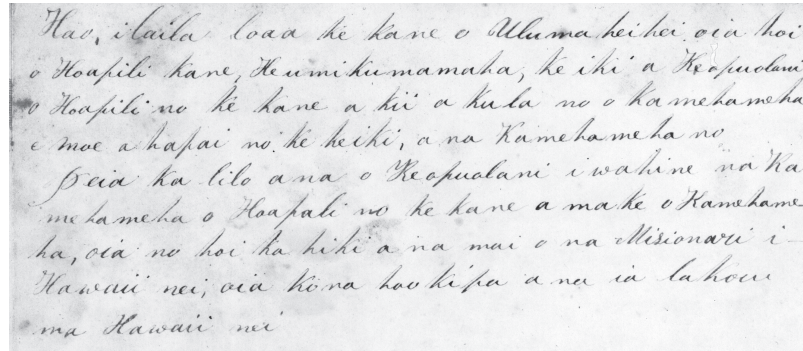 Hao, i laila loaa ke kane o Ulumaheihei oia hoi
o Hoapili kane, He umikumamaha, ke ihi a Keopuolani
o Hoapili no ke kane a kii a kula no o Kamehameha
e moe a hapai no ke keiki, a na Kamehameha no
Peia ka lilo ana o Keopuolani i wahine na Ka
mehameha o Hoapali no ke kane a make o Kamehame-
ha, oia no hoi ka hiki a na mai o na Misionari i-
Hawaii nei, oia kona hookipa ana ia lakou
ma Hawaii nei